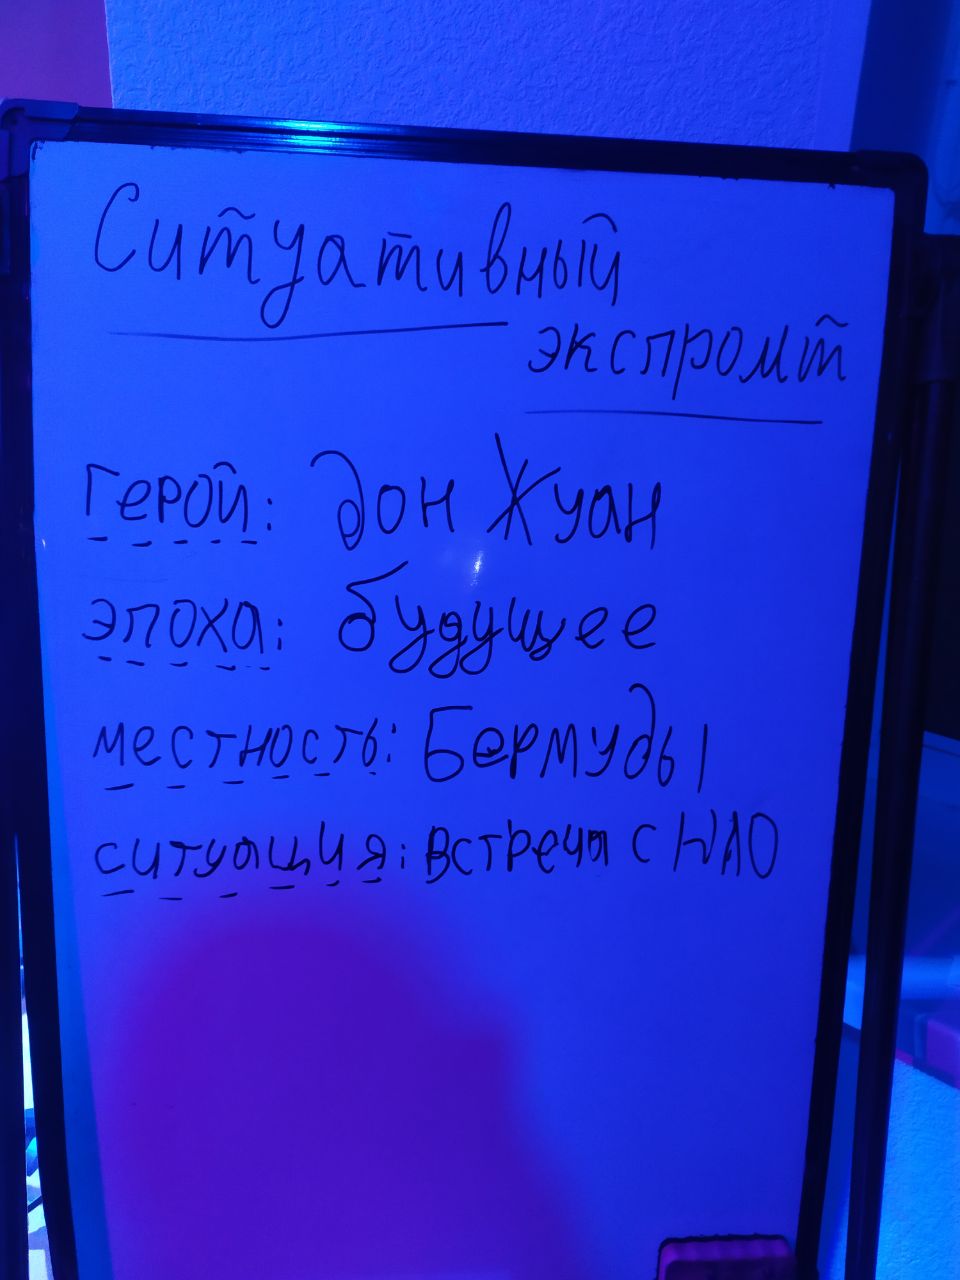 Ситуативный
экспромт
герой: дон Жуан
эпоха: будущее
местность: Бермуды
ситуация: встреча с НЛО